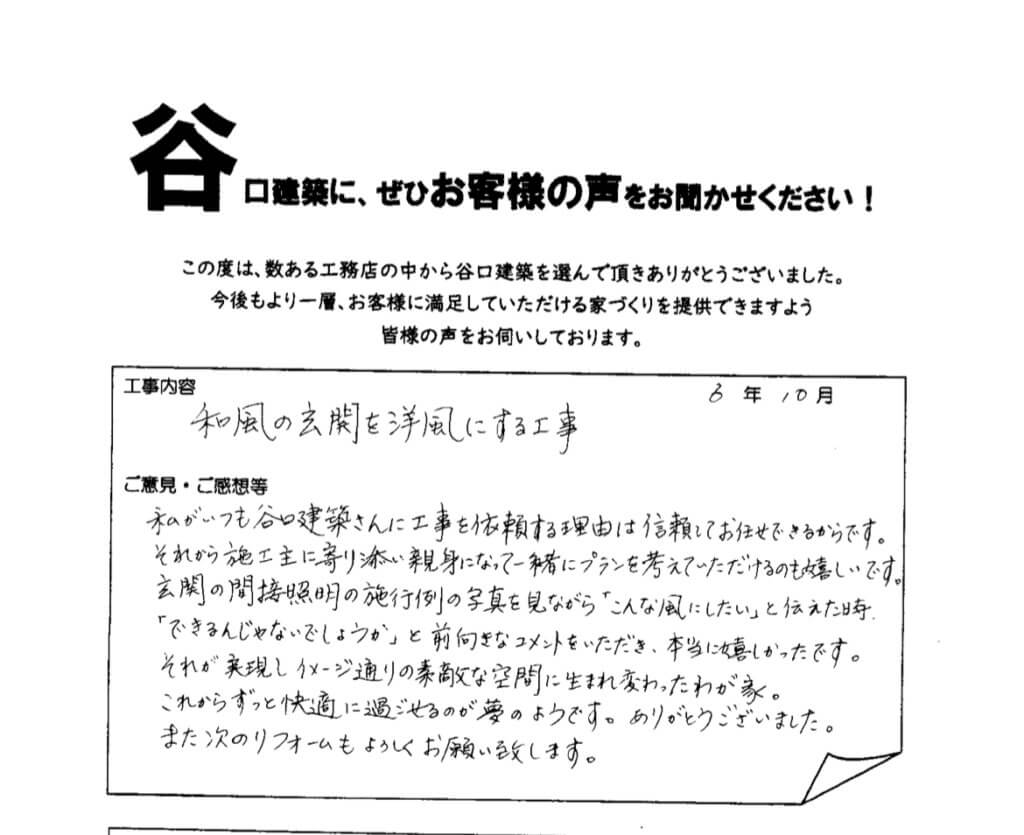 谷口建築に、ぜひお客様の声をお聞かせください！
この度は、数ある工務店の中から谷口建築を選んで頂きありがとうございました。
今後もより一層、お客様に満足していただける家づくりを提供できますよう
皆様の声をお伺いしております。
工事内容
6年10月
和風の玄関を洋風にする工事
ご意見・ご感想等
私がいつも谷口建築さんに工事を依頼する理由は信頼してお任せできるからです。
それから施工主に寄り添い親身になって一緒にプランを考えていただけるのも嬉しいです。
玄関の間接照明の施行例の写真を見ながら「こんな風にしたい」と伝えた時、
「できるんじゃないでしょうか」と前向きなコメントをいただき、本当に嬉しかったです。
それが実現しイメージ通りの素敵な空間に生まれ変わったわが家。
これからずっと快適に過ごせるのが夢のようです。ありがとうございました。
また次のリフォームもよろしくお願い致します。